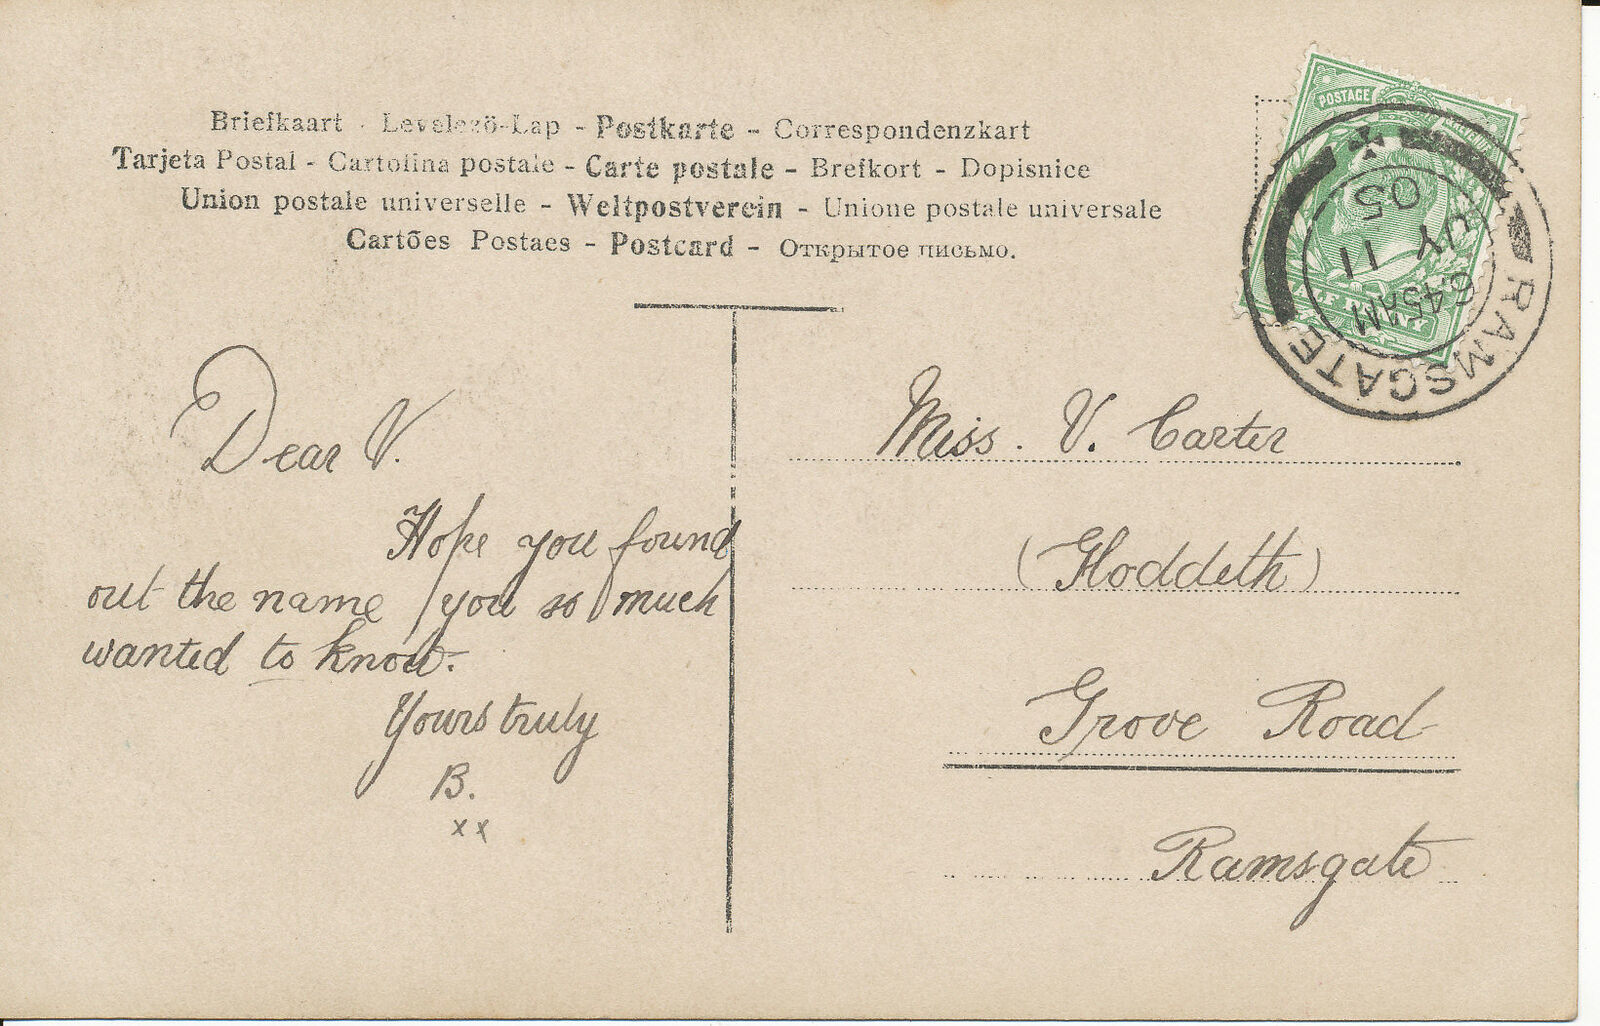 Briefkaart - Levelező-Lap - Postkarte - Correspondenzkart
Tarjeta Postal - Cartolina postale - Carte postale - Brefkort - Dopisnice
Union postale universelle - Weltpostverein - Unione postale universale
Cartões Postaes - Postcard - Открытое письмо.
POSTAGE
HALF PENNY
RAMSGATE
6.45AM
JY 11
05
Dear V.
Hope you found
out the name you so much
wanted to know.
Yours truly
B.
x x
Miss. V. Carter
(Hoddeth)
Grove Road
Ramsgate